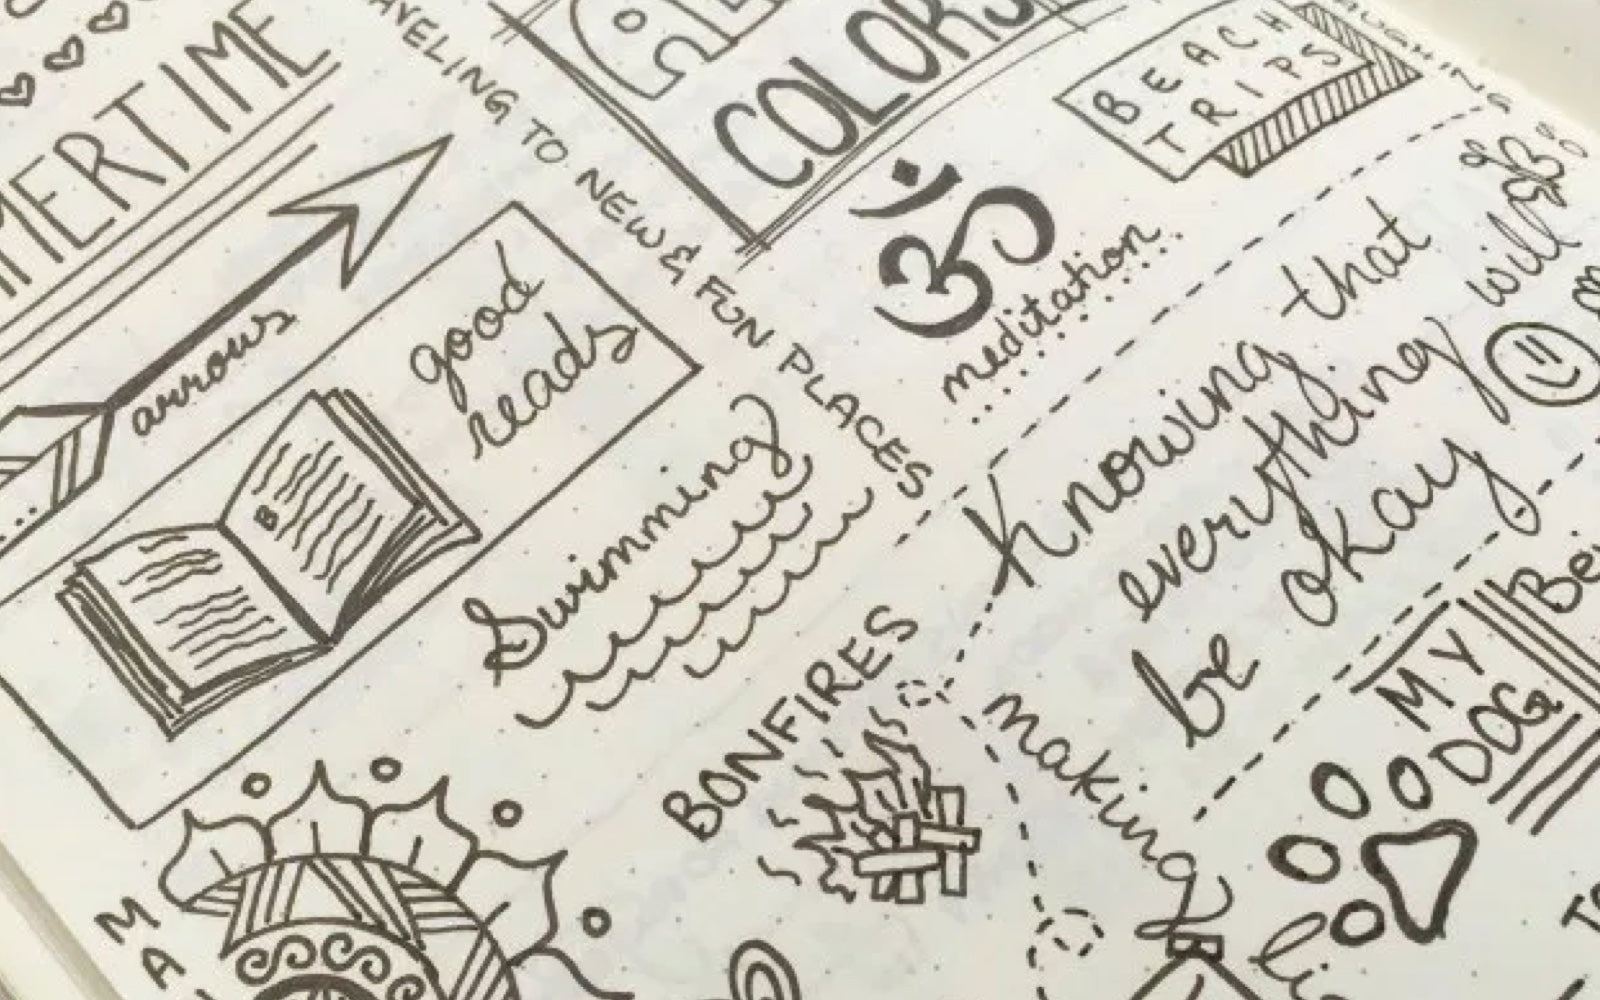 MERTIME
AVELING TO NEW & FUN PLACES
COLORS
BEACH
TRIPS
AUGHING
arrows
good
reads
B
ॐ
meditation
Swimming
Knowing that
everything will
be okay
BONFIRES
making
MY
DOG
Be
MA
li